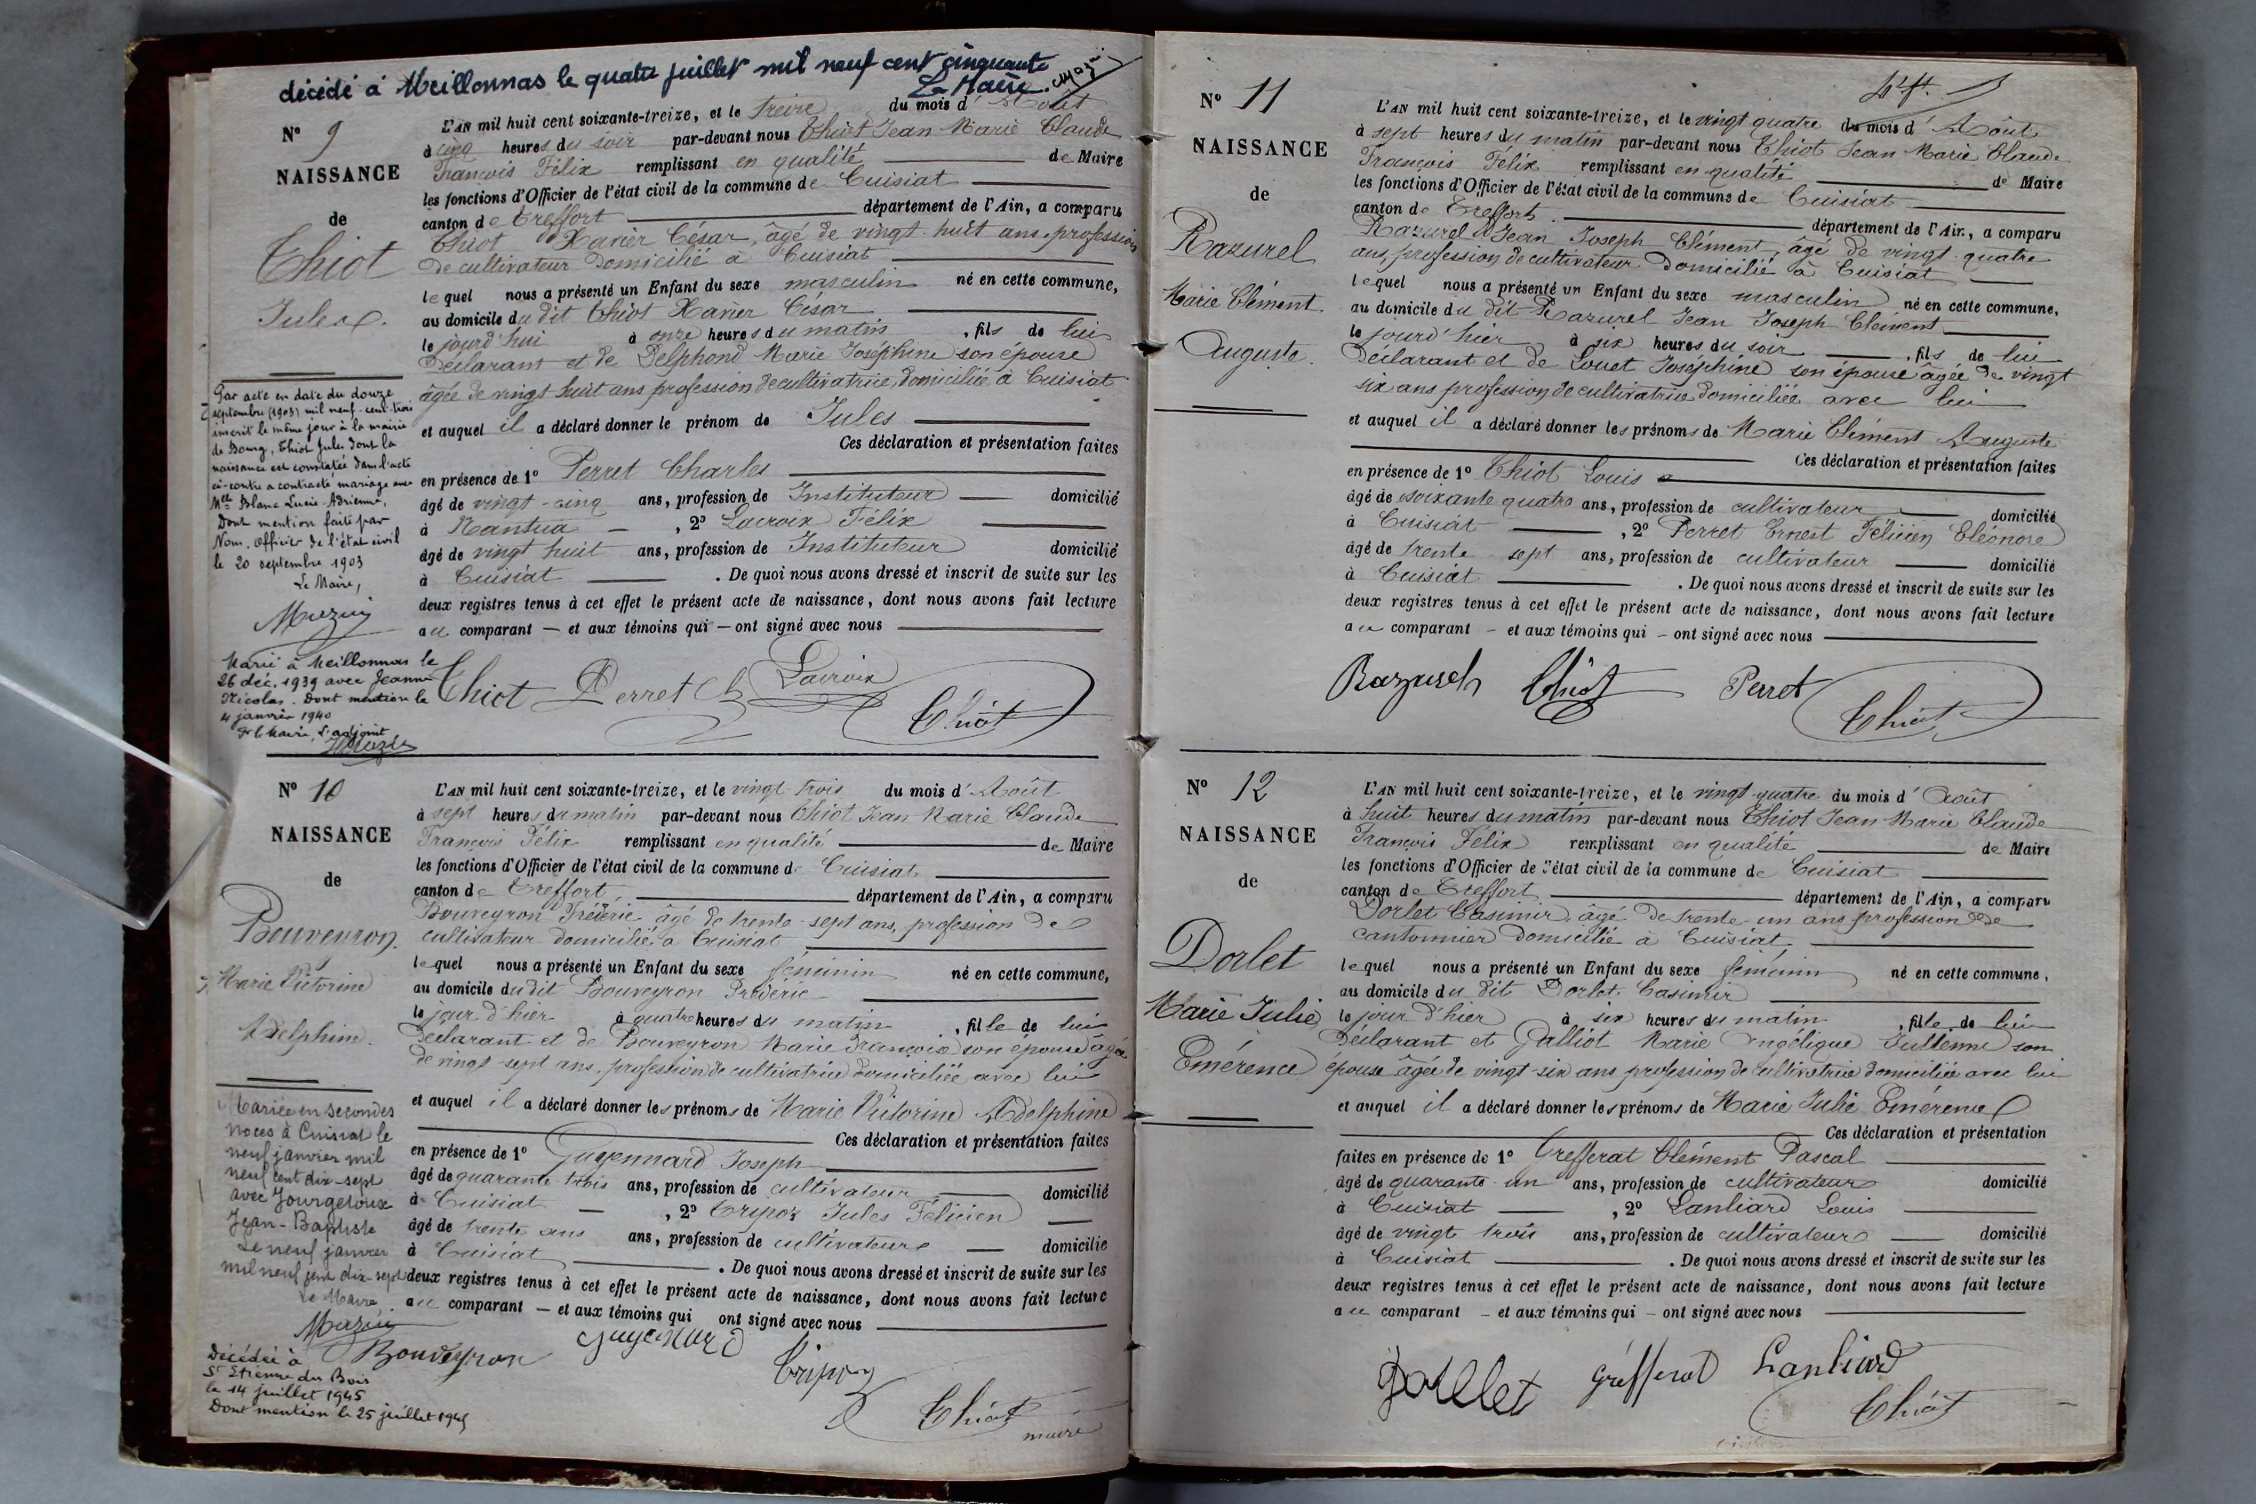 décédé à Meillonnas le quatre juillet mil neuf cent cinquante
Le Maire.
N° 9
NAISSANCE
de
Thiot
Jules.
L'AN mil huit cent soixante-treize, et le treize du mois d'Août
à cinq heures du soir par-devant nous Thiot Jean Marie Claude
François Félix remplissant en qualité de Maire
les fonctions d'Officier de l'état civil de la commune de Cuisiat
canton de Treffort département de l'Ain, a comparu
Thiot Xavier César, âgé de vingt-huit ans, profession
de cultivateur domicilié à Cuisiat
lequel nous a présenté un Enfant du sexe masculin né en cette commune,
au domicile du dit Thiot Xavier César
le jourd'hui à onze heures du matin, fils de lui
Déclarant et de Delphond Marie Joséphine son épouse
âgée de vingt huit ans profession de cultivatrice, domiciliée à Cuisiat
et auquel il a déclaré donner le prénom de Jules
Ces déclaration et présentation faites
en présence de 1° Perret Charles
âgé de vingt-cinq ans, profession de Instituteur domicilié
à Nantua, 2° Lacroix Félix
âgé de vingt huit ans, profession de Instituteur domicilié
à Cuisiat. De quoi nous avons dressé et inscrit de suite sur les
deux registres tenus à cet effet le présent acte de naissance, dont nous avons fait lecture
au comparant — et aux témoins qui — ont signé avec nous
Thiot Perret Ch Lacroix
Thiot
Par acte en date du douze
septembre (1903) mil neuf-cent-trois
inscrit le même jour à la mairie
de Bourg, Thiot Jules dont la
naissance est constatée dans l'acte
ci-contre a contracté mariage avec
Melle Blanc Lucie Adrienne,
Dont mention faite par
Nous, officier de l'état civil
le 20 septembre 1903
Le Maire,
Marié à Meillonnas le
26 déc. 1939 avec Jeanne
Nicolas. Dont mention le
4 janvier 1940
Pr le Maire, L'adjoint
N° 10
NAISSANCE
de
Bouveyron
Marie Victorine
Adelphine.
L'AN mil huit cent soixante-treize, et le vingt-trois du mois d'Août
à sept heures du matin par-devant nous Thiot Jean Marie Claude
François Félix remplissant en qualité de Maire
les fonctions d'Officier de l'état civil de la commune de Cuisiat
canton de Treffort département de l'Ain, a comparu
Bouveyron Frédéric âgé de trente-sept ans, profession de
cultivateur domicilié à Cuisiat
lequel nous a présenté un Enfant du sexe féminin né en cette commune,
au domicile du dit Bouveyron Frédéric
le jour d'hier à quatre heures du matin, fille de lui
Déclarant et de Bouveyron Marie Françoise son épouse âgée
de vingt-sept ans, profession de cultivatrice domiciliée avec lui
et auquel il a déclaré donner les prénoms de Marie Victorine Adelphine
Ces déclaration et présentation faites
en présence de 1° Guyennard Joseph
âgé de quarante trois ans, profession de cultivateur domicilié
à Cuisiat, 2° Tripoz Jules Félicien
âgé de trente ans ans, profession de cultivateur domicilié
à Cuisiat. De quoi nous avons dressé et inscrit de suite sur les
deux registres tenus à cet effet le présent acte de naissance, dont nous avons fait lecture
au comparant — et aux témoins qui ont signé avec nous
Bouveyron Guyennard
Tripoz
Thiot
maire
Mariée en secondes
noces à Cuisiat le
neuf janvier mil
neuf cent dix-sept
avec Jourgetoux
Jean-Baptiste
Le neuf janvier
mil neuf cent dix-sept
Le Maire,
Décédée à
St Etienne du Bois
le 14 juillet 1945
Dont mention le 25 juillet 1945
N° 11
NAISSANCE
de
Razurel
Marie Clément
Auguste.
L'AN mil huit cent soixante-treize, et le vingt quatre du mois d'Août
à sept heures du matin par-devant nous Thiot Jean Marie Claude
François Félix remplissant en qualité de Maire
les fonctions d'Officier de l'état civil de la commune de Cuisiat
canton de Treffort département de l'Ain, a comparu
Razurel Jean Joseph Clément, âgé de vingt-quatre
ans, profession de cultivateur domicilié à Cuisiat
lequel nous a présenté un Enfant du sexe masculin né en cette commune,
au domicile du dit Razurel Jean Joseph Clément
le jourd'hier à six heures du soir, fils de lui
Déclarant et de Louet Joséphine son épouse âgée de vingt
six ans profession de cultivatrice domiciliée avec lui
et auquel il a déclaré donner les prénoms de Marie Clément Auguste
Ces déclaration et présentation faites
en présence de 1° Thiot Louis
âgé de soixante quatre ans, profession de cultivateur domicilié
à Cuisiat, 2° Perret Ernest Félicien Eléonore
âgé de trente-sept ans, profession de cultivateur domicilié
à Cuisiat. De quoi nous avons dressé et inscrit de suite sur les
deux registres tenus à cet effet le présent acte de naissance, dont nous avons fait lecture
au comparant — et aux témoins qui — ont signé avec nous
Thiot Perret
Thiot
N° 12
NAISSANCE
de
Dorlet
Marie Julie
Emérence
L'AN mil huit cent soixante-treize, et le vingt-quatre du mois d'Août
à huit heures du matin par-devant nous Thiot Jean Marie Claude
François Félix remplissant en qualité de Maire
les fonctions d'Officier de l'état civil de la commune de Cuisiat
canton de Treffort département de l'Ain, a comparu
Dorlet Casimir, âgé de trente-un ans profession de
cantonnier domicilié à Cuisiat
lequel nous a présenté un Enfant du sexe féminin né en cette commune,
au domicile du dit Dorlet Casimir
le jour d'hier à six heures du matin, fille de lui
Déclarant et Galliot Marie Angélique Jullenne son
épouse âgée de vingt-six ans profession de cultivatrice domiciliée avec lui
et auquel il a déclaré donner les prénoms de Marie Julie Emérence
Ces déclaration et présentation
faites en présence de 1° Grefferat Clément Pascal
âgé de quarante-un ans, profession de cultivateur domicilié
à Cuisiat, 2° Lanliard Louis
âgé de vingt trois ans, profession de cultivateur domicilié
à Cuisiat. De quoi nous avons dressé et inscrit de suite sur les
deux registres tenus à cet effet le présent acte de naissance, dont nous avons fait lecture
au comparant — et aux témoins qui — ont signé avec nous
Grefferat Lanliard
Thiot